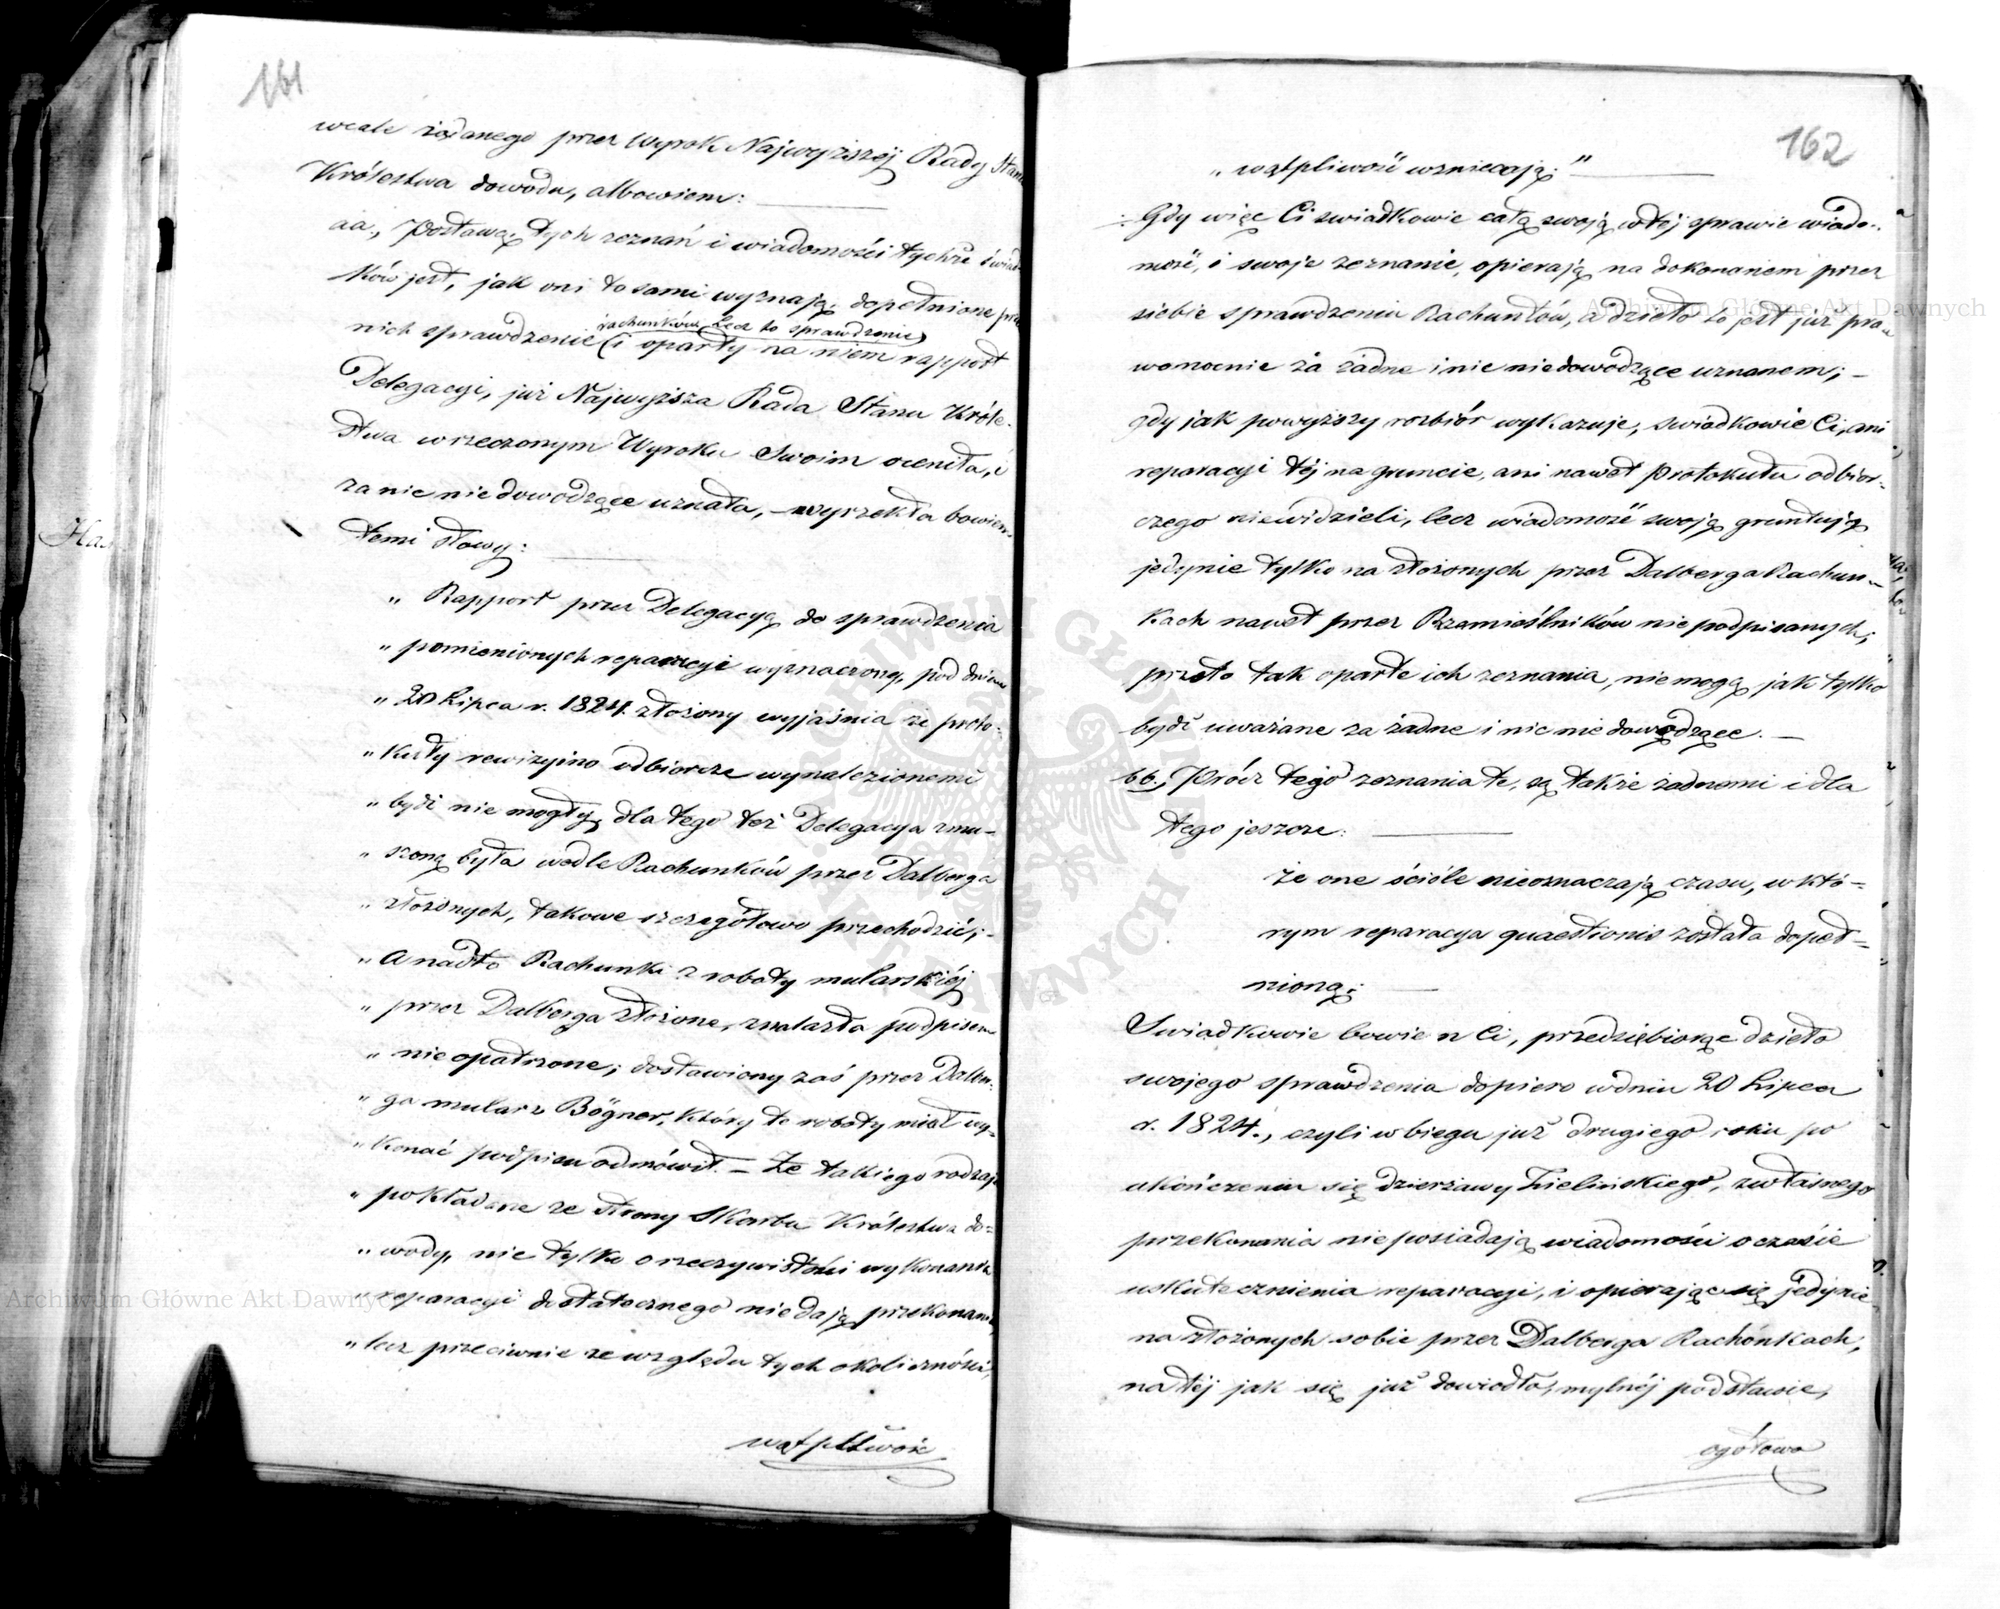 161
wcale żądanego przez Wyrok Najwyższéj Rady Stanu
Królestwa dowodu, albowiem:
aa., Postawą tych zeznań i wiadomości tychże świad-
ków jest, jak oni to sami wyznają, dopełnione przez
rachunków, lecz to sprawdzenie
nich sprawdzenie (i oparty na niem rapport
Delegacyi, już Najwyższa Rada Stanu Króle-
stwa w rzeczonym Wyroku Swoim oceniła, i
za nic niedowodzące uznała, – wyrzekła bowiem
temi słowy:
„ Rapport przez Delegacyą do sprawdzenia
„ pomienionych reparacyi wyznaczoną, pod dniem
„ 20 Lipca r. 1824. złożony wyjaśnia że proto-
„ kuły rewizyjno odbiorcze wynalezionemi
„ bydź nie mogły, dla tego też Delegacya zmu-
„ szoną była wedle Rachunków przez Dalberga
„ złożonych, takowe szczegółowo przechodzić; –
„ A nadto Rachunki z roboty mularskiéj
„ przez Dalberga złożone, znalazła podpisem
„ nie opatrzone; dostawiony zaś przez Dalber-
„ ga mularz Bögner, który te roboty miał wy-
„ konać podpisu odmówił. – Że takiego rodzaju
„ pokładane ze strony Skarbu Królestwa do-
„ wody, nie tylko o rzeczywistości wykonania
„ reparacyi dostatecznego nie dają przekonania,
„ lecz przeciwnie ze względu tych okoliczności,
wątpliwość
162
„ wątpliwość wzniecają; ”
Gdy więc Ci swiadkowie całą swoją w téj sprawie wiado-
mość, i swoje zeznanie, opierają na dokonanem przez
siebie sprawdzeniu Rachunków, a dzieło to jest już pra-
womocnie za żadne i nic niedowodzące uznanem; –
gdy jak powyższy rozbiór wykazuje, swiadkowie Ci, ani
reparacyi téj na gruncie, ani nawet Protokułu odbior-
czego niewidzieli, lecz wiadomość swoją gruntują
jedynie tylko na złożonych przez Dalberga Rachun-
kach nawet przez Rzemieślników niepodpisanych;
przeto tak oparte ich zeznania, niemogą jak tylko
bydź uważane za żadne i nic niedowodzące. –
bb., Prócz tego zeznania te, są także żadnemi i dla
tego jeszcze:
że one ściśle nieoznaczają czasu, w któ-
rym reparacya quaestionis została dopeł-
nioną;
Swiadkowie bowiem Ci, przedsiębiorąc dzieło
swojego sprawdzenia dopiero w dniu 20 Lipca
r. 1824., czyli w biegu już drugiego roku po
ukończeniu się dzierżawy Zielińskiego, z własnego
przekonania nieposiadają wiadomości o czasie
uskutecznienia reparacyi, i opierając się jedynie
na złożonych sobie przez Dalberga Rachónkach,
na téj jak się już dowiodło, mylnéj podstawie,
ogółowo
Archiwum Główne Akt Dawnych
Archiwum Główne Akt Dawnych
ARCHIWUM GŁÓWNE AKT DAWNYCH